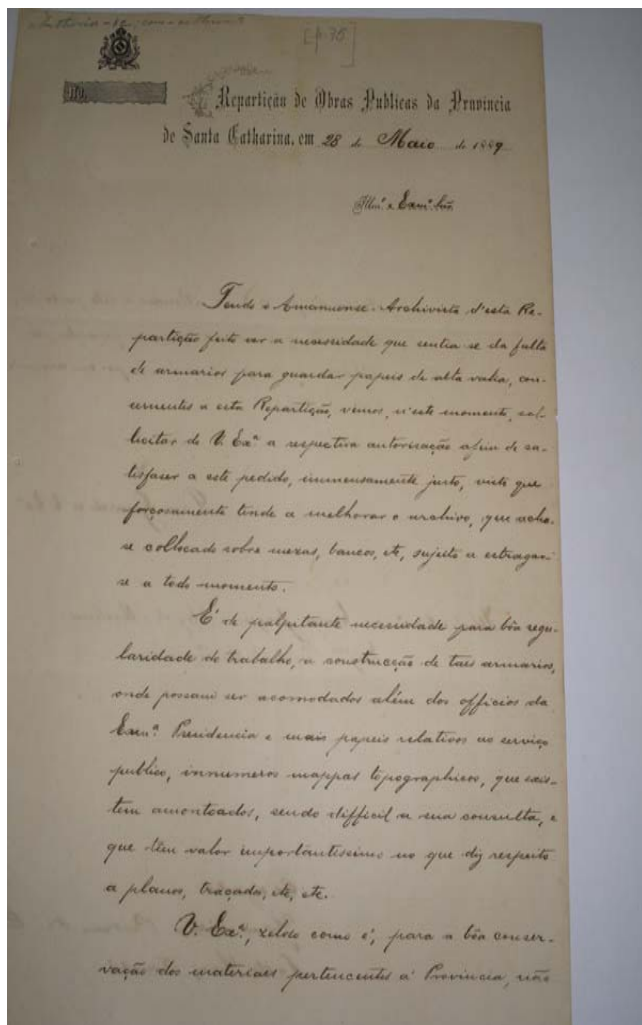 [p. 35]
N.
Repartição de Obras Publicas da Provincia
de Santa Catharina, em 28 de Maio de 1889
Illm.º e Exm.º Snr.
Tendo o Amanuense-Archivista d'esta Re-
partição feito ver a necessidade que sentia se da falta
de armarios para guardar papeis de alta valia, con-
cernentes a esta Repartição, vimos, n'este momento, sol-
licitar de V. Ex.ª a respectiva autorisação afim de sa-
tisfaser a este pedido, immensamente justo, visto que
forçosamente tende a melhorar o archivo, que acha-
se collocado sobre mezas, bancos, etc, sujeito a estragar-
se a todo momento.
É de palpitante necessidade para bôa regu-
laridade do trabalho, a construcção de taes armarios,
onde possam ser acomodados além dos officios da
Exm.ª Presidencia e mais papeis relativos ao serviço
publico, innumeros mappas topographicos, que exis-
tem amontoados, sendo difficil a sua consulta, e
que têm valor importantissimo no que diz respeito
a planos, traçados, etc, etc.
V. Ex.ª, zeloso como é, para a bôa conser-
vação dos materiaes pertencentes á Provincia, não